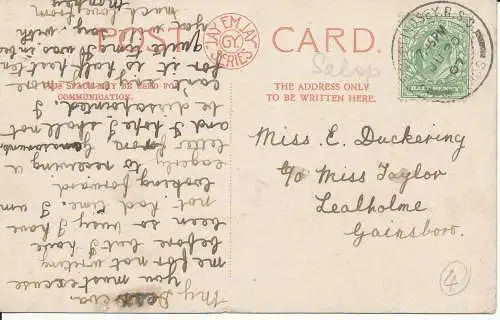 POST CARD.
JAY EM JAY
GY
SERIES
THIS SPACE MAY BE USED FOR
COMMUNICATION.
THE ADDRESS ONLY
TO BE WRITTEN HERE.
Salop
HALF PENNY
Miss E. Duckering
c/o Miss Taylor
Lealholme
Gainsboro.
4
My Dear Eva
you must excuse
me for not writing
before but I have
been so busy I have
not had time. I am
looking forward
eagerly to receiving a
letter from
and I hope I shall not
be disappointed.
for it to half past ten
I was in bed
day, with
much love from